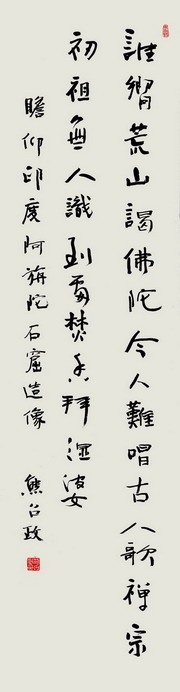 誰嚮荒山謁佛陀今人難唱古人歌禪宗
初祖無人識到處焚香拜湿婆
瞻仰印度阿旃陀石窟造像 熊召政